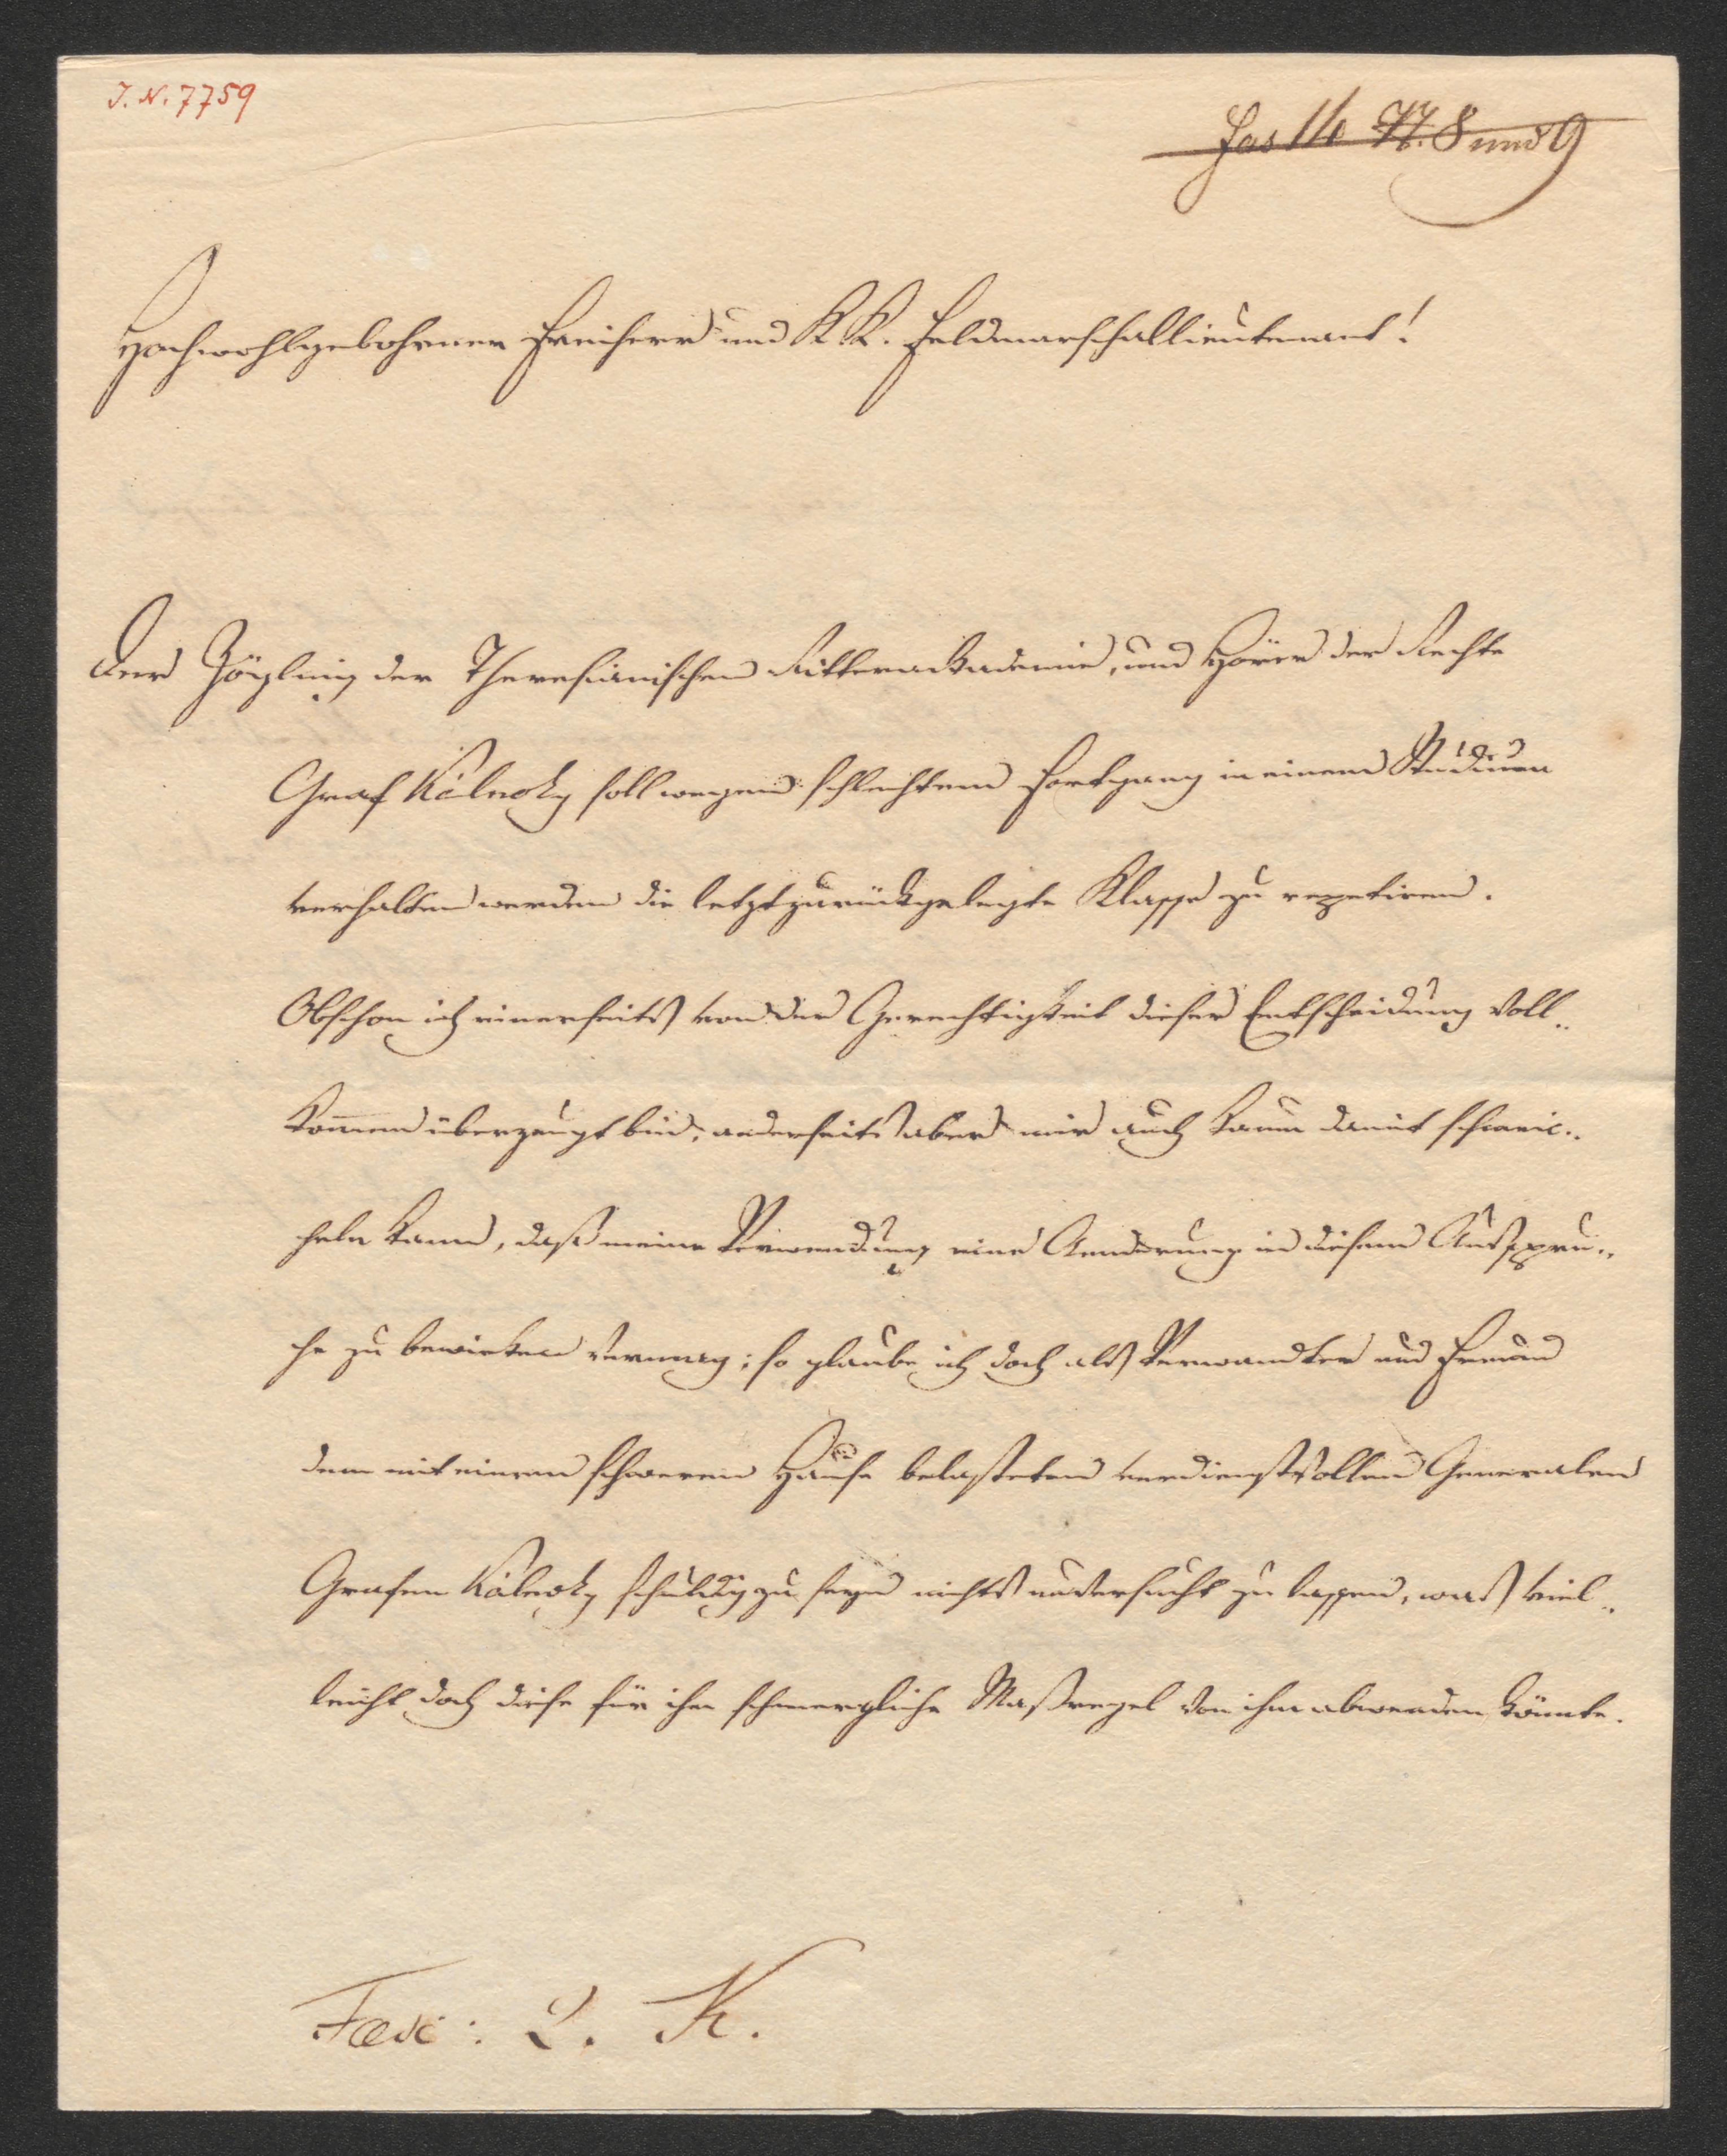 J. N. 7759
Fas 14 N. 8 und 9
Hochwohlgebohrner Freiherr und K.K. Feldmarschallieutenant!
Der Zögling der Theresianischen Ritterackademie, und Hörer der Rechte
Graf Kálnoky soll wegen schlechtem Fortgang in einem Studium
verhalten werden die letzt zurückgelegte Klasse zu repetiren.
Obschon ich einerseits von der Gerechtigkeit dieser Entscheidung voll„
kom̄en überzeugt bin; anderseits aber mir auch kaum damit schmei„
cheln kann, daß meine Verwendung eine Aenderung in diesem Ausspru„
che zu bewirken vermag; so glaube ich doch als Verwandter und Freund
dem mit einem schweren Hause belasteten verdienstvollen Generalen
Grafen Kálnoky schuldig zu seyn nichts unversucht zu lassen, was viel„
leicht doch diese für ihn schmerzliche Maßregel von ihm abwenden könnte.
Fasc: 2. K.